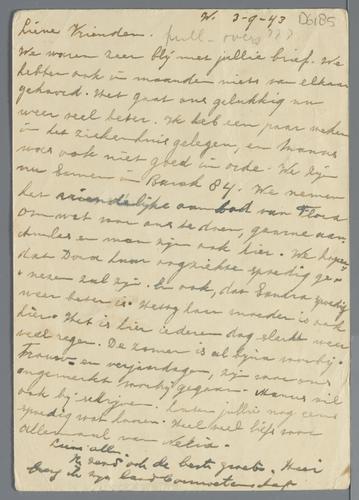 W. 3-9-43 D6185
Lieve Vrienden. pull-overs???
We waren zeer blij met jullie brief. We
hebben ook in maanden niets van elkaar
gehoord. Het gaat ons gelukkig nu
weer veel beter. Ik heb een paar weken
in het ziekenhuis gelegen, en Manus
was ook niet goed in orde. We zijn
nu samen in Barak 84. We nemen
het vriendelijke aanbod van Flora
om wat voor ons te doen, gaarne aan.
en man zijn ook hier. We hopen
dat Dora haar spoedig ge-
nezen zal zijn. En ook, dat Sandra spoedig
weer beter is. Hetty haar moeder is ook
hier. Het is hier iederen dag slecht weer
veel regen. De zomer is al bijna voorbij.
Trouw- en verjaardagen, zijn voor ons
ongemerkt voorbij gegaan. Manus wil
ook bij schrijven. Laten jullie nog eens
spoedig wat hooren. Heel veel liefs voor
allemaal van
Lieve allen.
Ik zend ook de beste groeten. Hier